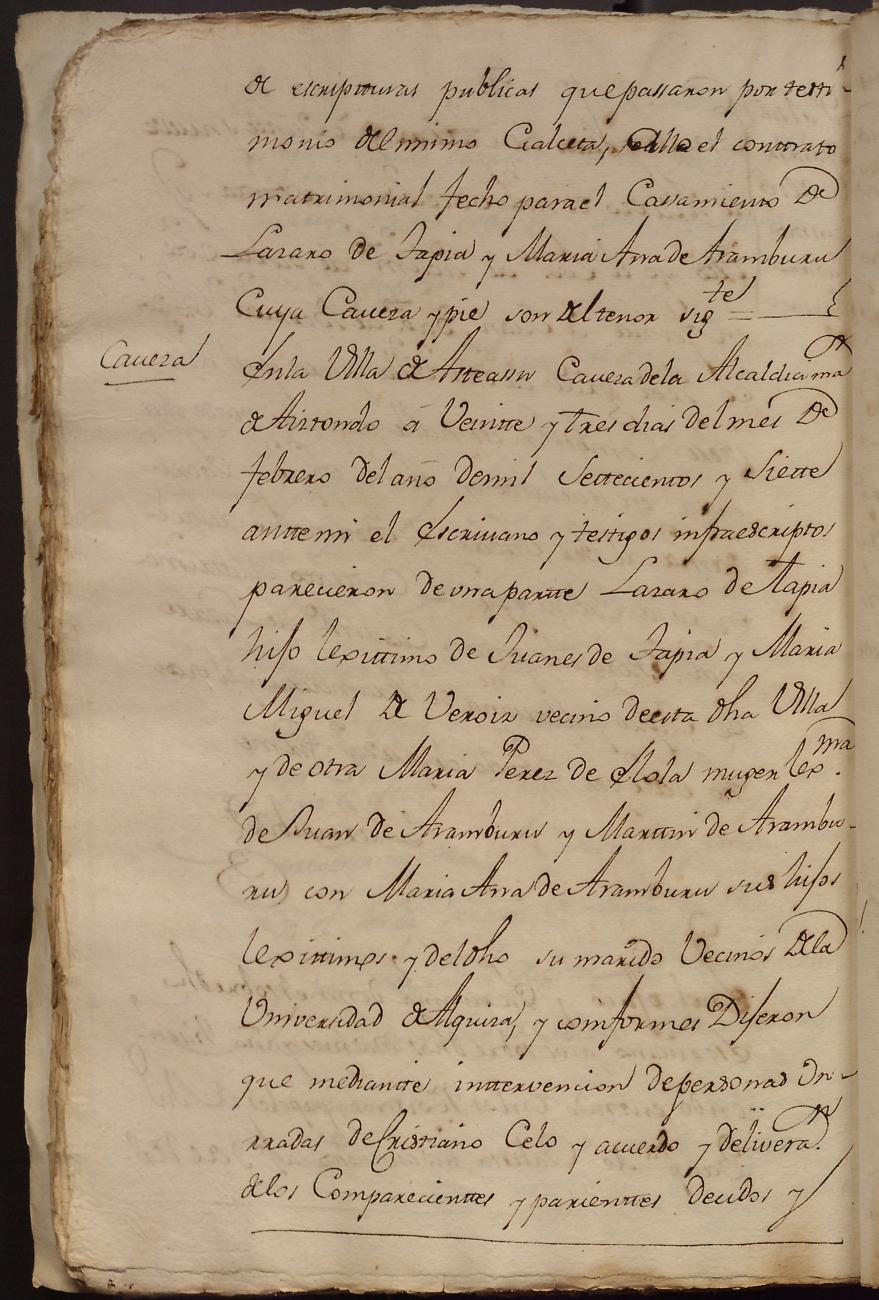 de escriptturas publicas que passaron por testti-
monio del mimo Cialceta, se alla el conttrato
matrimonial fecho para el Cassamiento De
Lazaro de Tapia y Maria Ana de Aramburu
Cuya Caveza y pie son del tenor sigte
Caveza
En la Villa de Asteassu Cavera de la Alcaldia ma
de Aiztondo á Veintte y tres dias del mes De
febrero del año de mil Settecientos y Siette
antte mi el Escrivano y testigos infraescriptos
parecieron de una partte Lazaro de Tapia
hijo lexittimo de Juanes de Tapia y Maria
Miguel de Veroiz vecino de esta dha Villa
y de otra Maria Perez de Elola muger lexma.
de Juan de Aramburu y Marttin de Arambu-
ru con Maria Ana de Aramburu sus hijos
lexittimos y del dho su marido Vecinos de la
Universidad de Alquiza, y comformes Dijeron
que mediantte inttervencion de personas On-
rradas de Cristiano Celo y acuerdo y delivera.n
de los Comparecienttes y parienttes decidos y